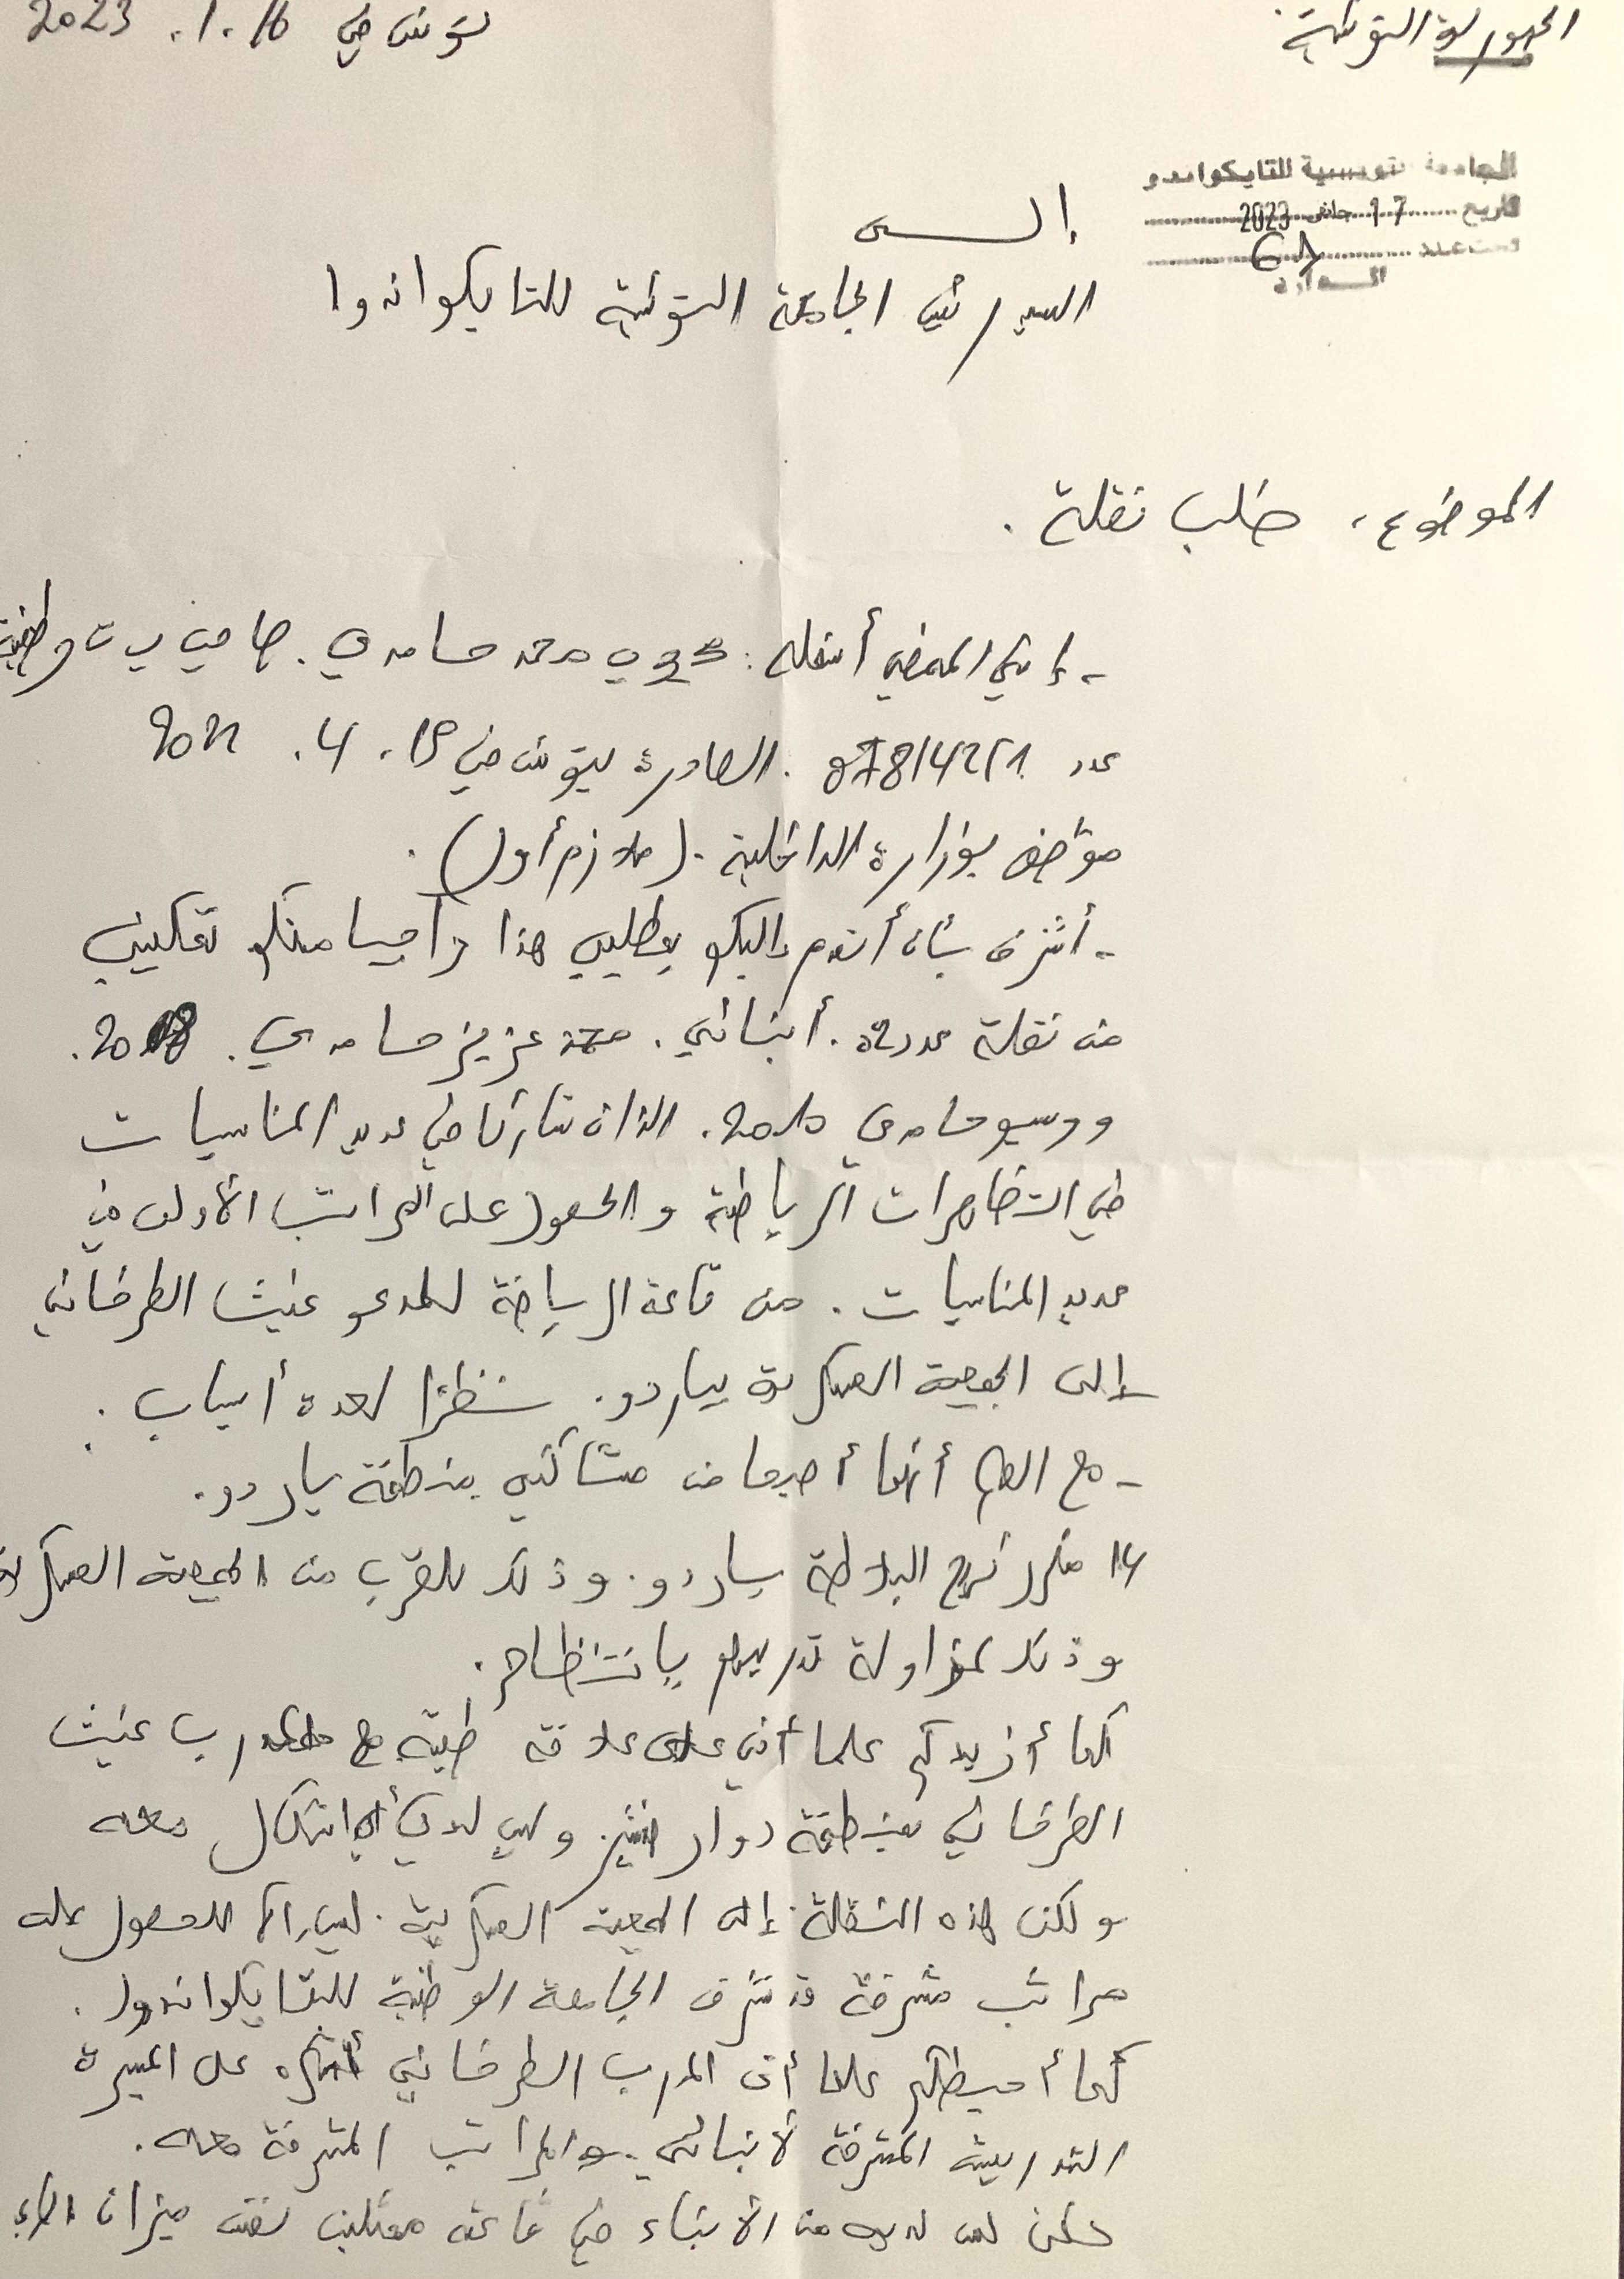 الجمهورية التونسية
تونس في 16. 1. 2023
الجامعة التونسية للتايكواندو
تاريخ 17 جانفي 2023
تحت عدد
الواردة
إلى
السيد رئيس الجامعة التونسية للتايكواندوا
الموضوع، طلب نقلة.
- إنني الممضي أسفله: محمد حامدي. صاحب ب ت وطنية
عدد الصادرة بتونس في
موظف بوزارة الداخلية. (ملازم أول).
- أتشرف بأن أتقدم إليكم بطلبي هذا راجيا منكم تمكيني
من نقلة أبنائي. محمد عزيز حامدي.
ووسيم حامدي 2010. الذان شاركا في عديد المناسبات
في التظاهرات الرياضية والحصول على المراتب الأولى في
عديد المناسبات. من قاعة الرياضة للمدعو غيث الطرخاني
إلى الجمعية العسكرية بباردو. نظرا لعدة أسباب.
- مع العلم أنهما أصبحا من متساكني بمنطقة باردو.
14 مكرر نهج البلاطة باردو. وذلك للقرب من الجمعية العسكرية
وذلك لمزاولة تدريبهم بانتظام.
كما أزيدكم علما أني على علاقة طيبة مع المدرب غيث
الطرخاني بمنطقة دوار هيشر. وليس لدي أي إشكال معه
ولكن هذه النقلة إلى الجمعية العسكرية. للحصول على
مراتب مشرفة قد تشرف الجامعة الوطنية للتايكواندوا.
كما أحيطكم علما أن المدرب الطرخاني أشكره على المسيرة
التدريبية المشرفة لأبنائي. والمراتب المشرفة معه.
لديه من الأبناء في قاعته ممثلين نفس ميزان